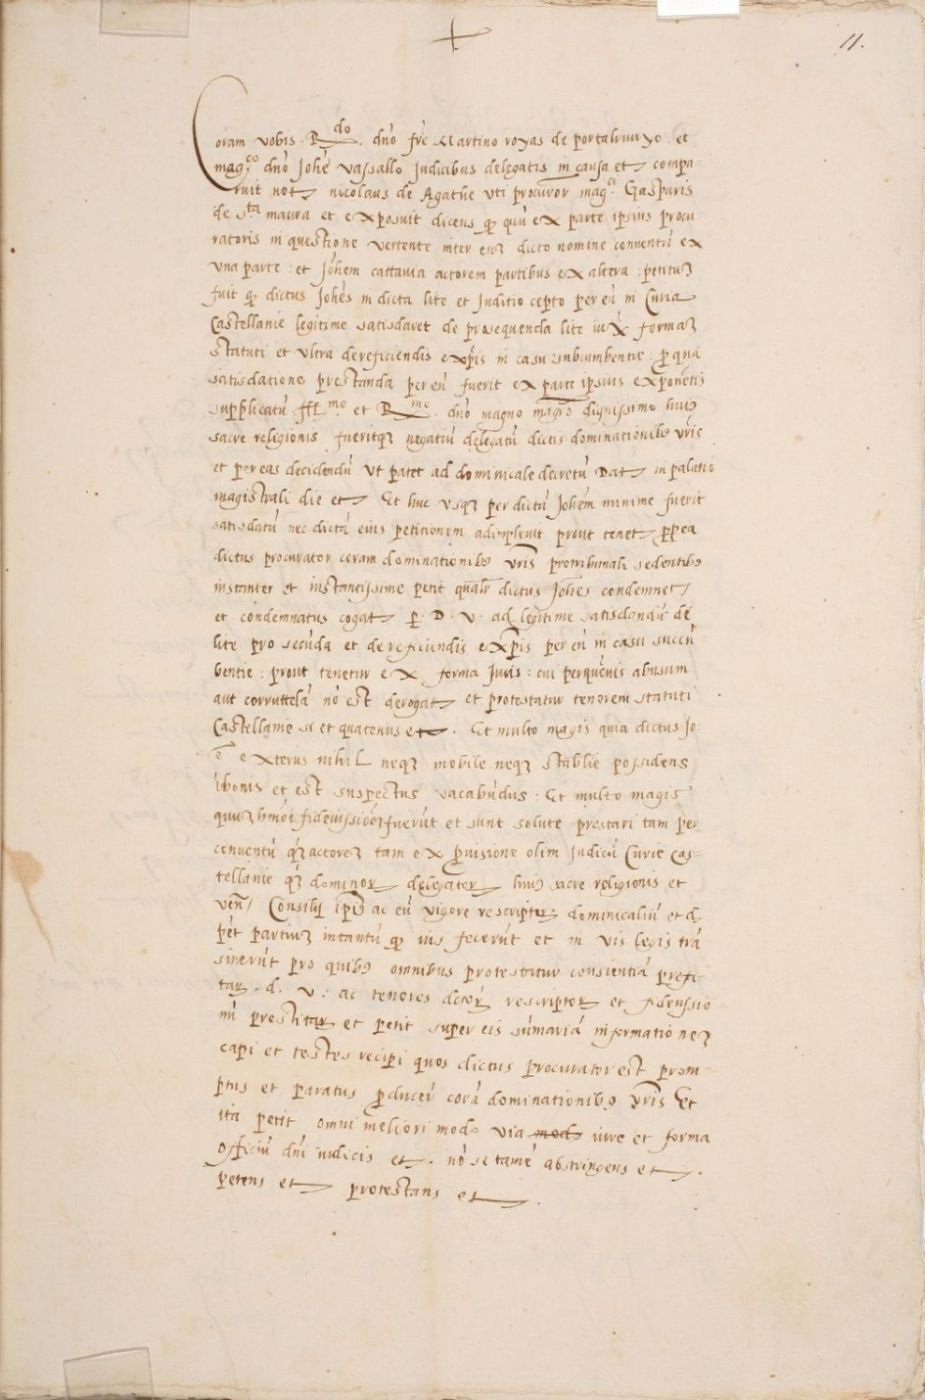 11.
Coram vobis R.do dño frē Martino royas de portalruuyo et
mag.co dño Johē vassallo Judicibus delegatis in causa et compa-
ruit not nicolaus de Agathe uti procuror mag.ci Gasparis
de sta maura et exposuit dicens qƺ quū ex parte ipsius procu
ratoris in questione vertente inter eūƺ dicto nomine conventū ex
una parte : et Johem cattavia actorem partibus ex altera : petituƺ
fuit qƺ dictus Johēs in dicta lite et Juditio cepto per eū in Curia
Castellanie legitime satisdaret de prosequenda lite iuxᵃ formaƺ
statuti et ultra de reficiendis expīs in casu subcumbentie : p quā
satisdatione prestanda per eū fuerit ex parte ipsius exponētis
supplicatū Ill.mo et R.mo dño magno magrō dignissimo huiꝰ
sacre religionis fueritqƺ negotiū delegatū dictis dominationibꝰ vr̄is
et per eas decidendū ut patet ad dominicale decretū Dat in palatio
magistrali die et Et huc usqƺ per dictū Johēm minime fuerit
satisdatū nec dictā eius petitionem adimplevit prout tenet ppea
dictus procurator coram dominationibꝰ vr̄is protribunali sedentibꝰ
instanter et instantissime petit quatr̄ dictus Johēs condemnet
et condemnatus cogat p. D. V. ad legitime satisdandū de
lite pro secūda et de reficiendis expīs per eū in casu succū
bentie : prout tenetur ex forma Juris : cui perquēvis abusum
aut corruttelā nō est derogat et protestatur tenorem statuti
Castellanie si et quatenus et . Et multo magis quia dictus Jo:
ēs exterus nihil neqƺ mobile neqƺ stablie possidens
ibonis et est suspectus vacabūdus : Et multo magis
quuƺ hmōi fideiussiōēƺ fuerūt et sunt solute prestari tam per
conventū qƺ actoreƺ tam ex pvisione olim Judicū Curie Cas-
tellanie qƺ dominor delegator huiꝰ sacre religionis et
ven Consilij ipīꝰ ac eū vigore rescriptor dominicaliū et
pēt partiuƺ intantū qƺ ius fecerūt et in vis legis trā
sinerūt pro quibꝰ omnibus protestatur consientiā prefa-
tar. d. v. : ac tenores dctor rescriptor et fideussio
nū prestitar et petit super eis sūmariā informationeƺ
capi et testes recipi quos dictus procurator est prom-
ptus et paratus pducer̄ corā dominationibꝰ vr̄is Et
ita petit omni meliori modo via modo iure et forma
officiū dñi iudicis et . nō se tamē abstringens et .
petens et protestans et .